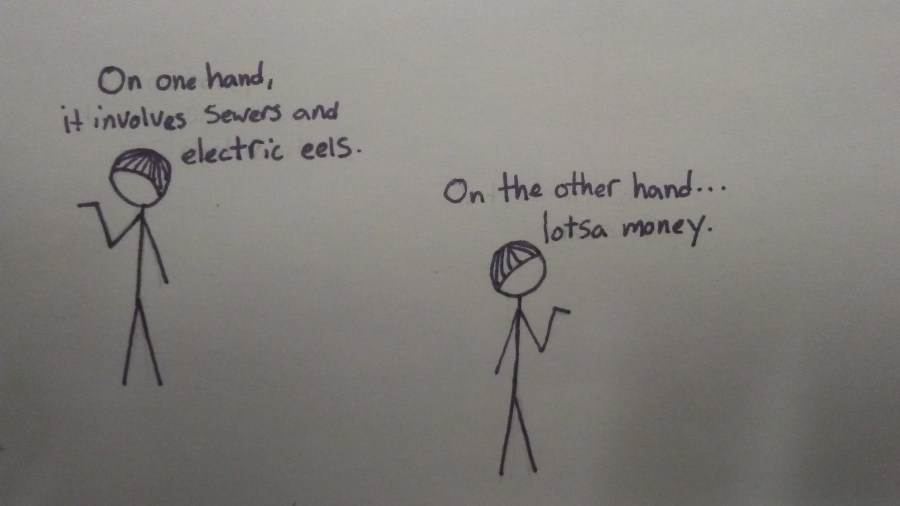 On one hand,
it involves sewers and
electric eels.
On the other hand...
lotsa money.